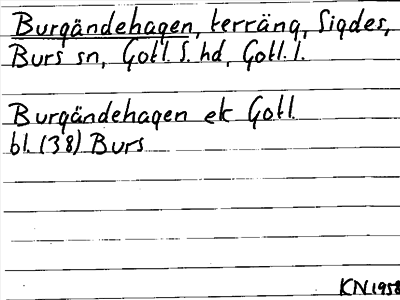 Burgändehagen, terräng, Sigdes,
Burs sn, Gotl. S. hd, Gotl. l.
Burgändehagen ek Gotl.
bl. (38) Burs
KN 1958